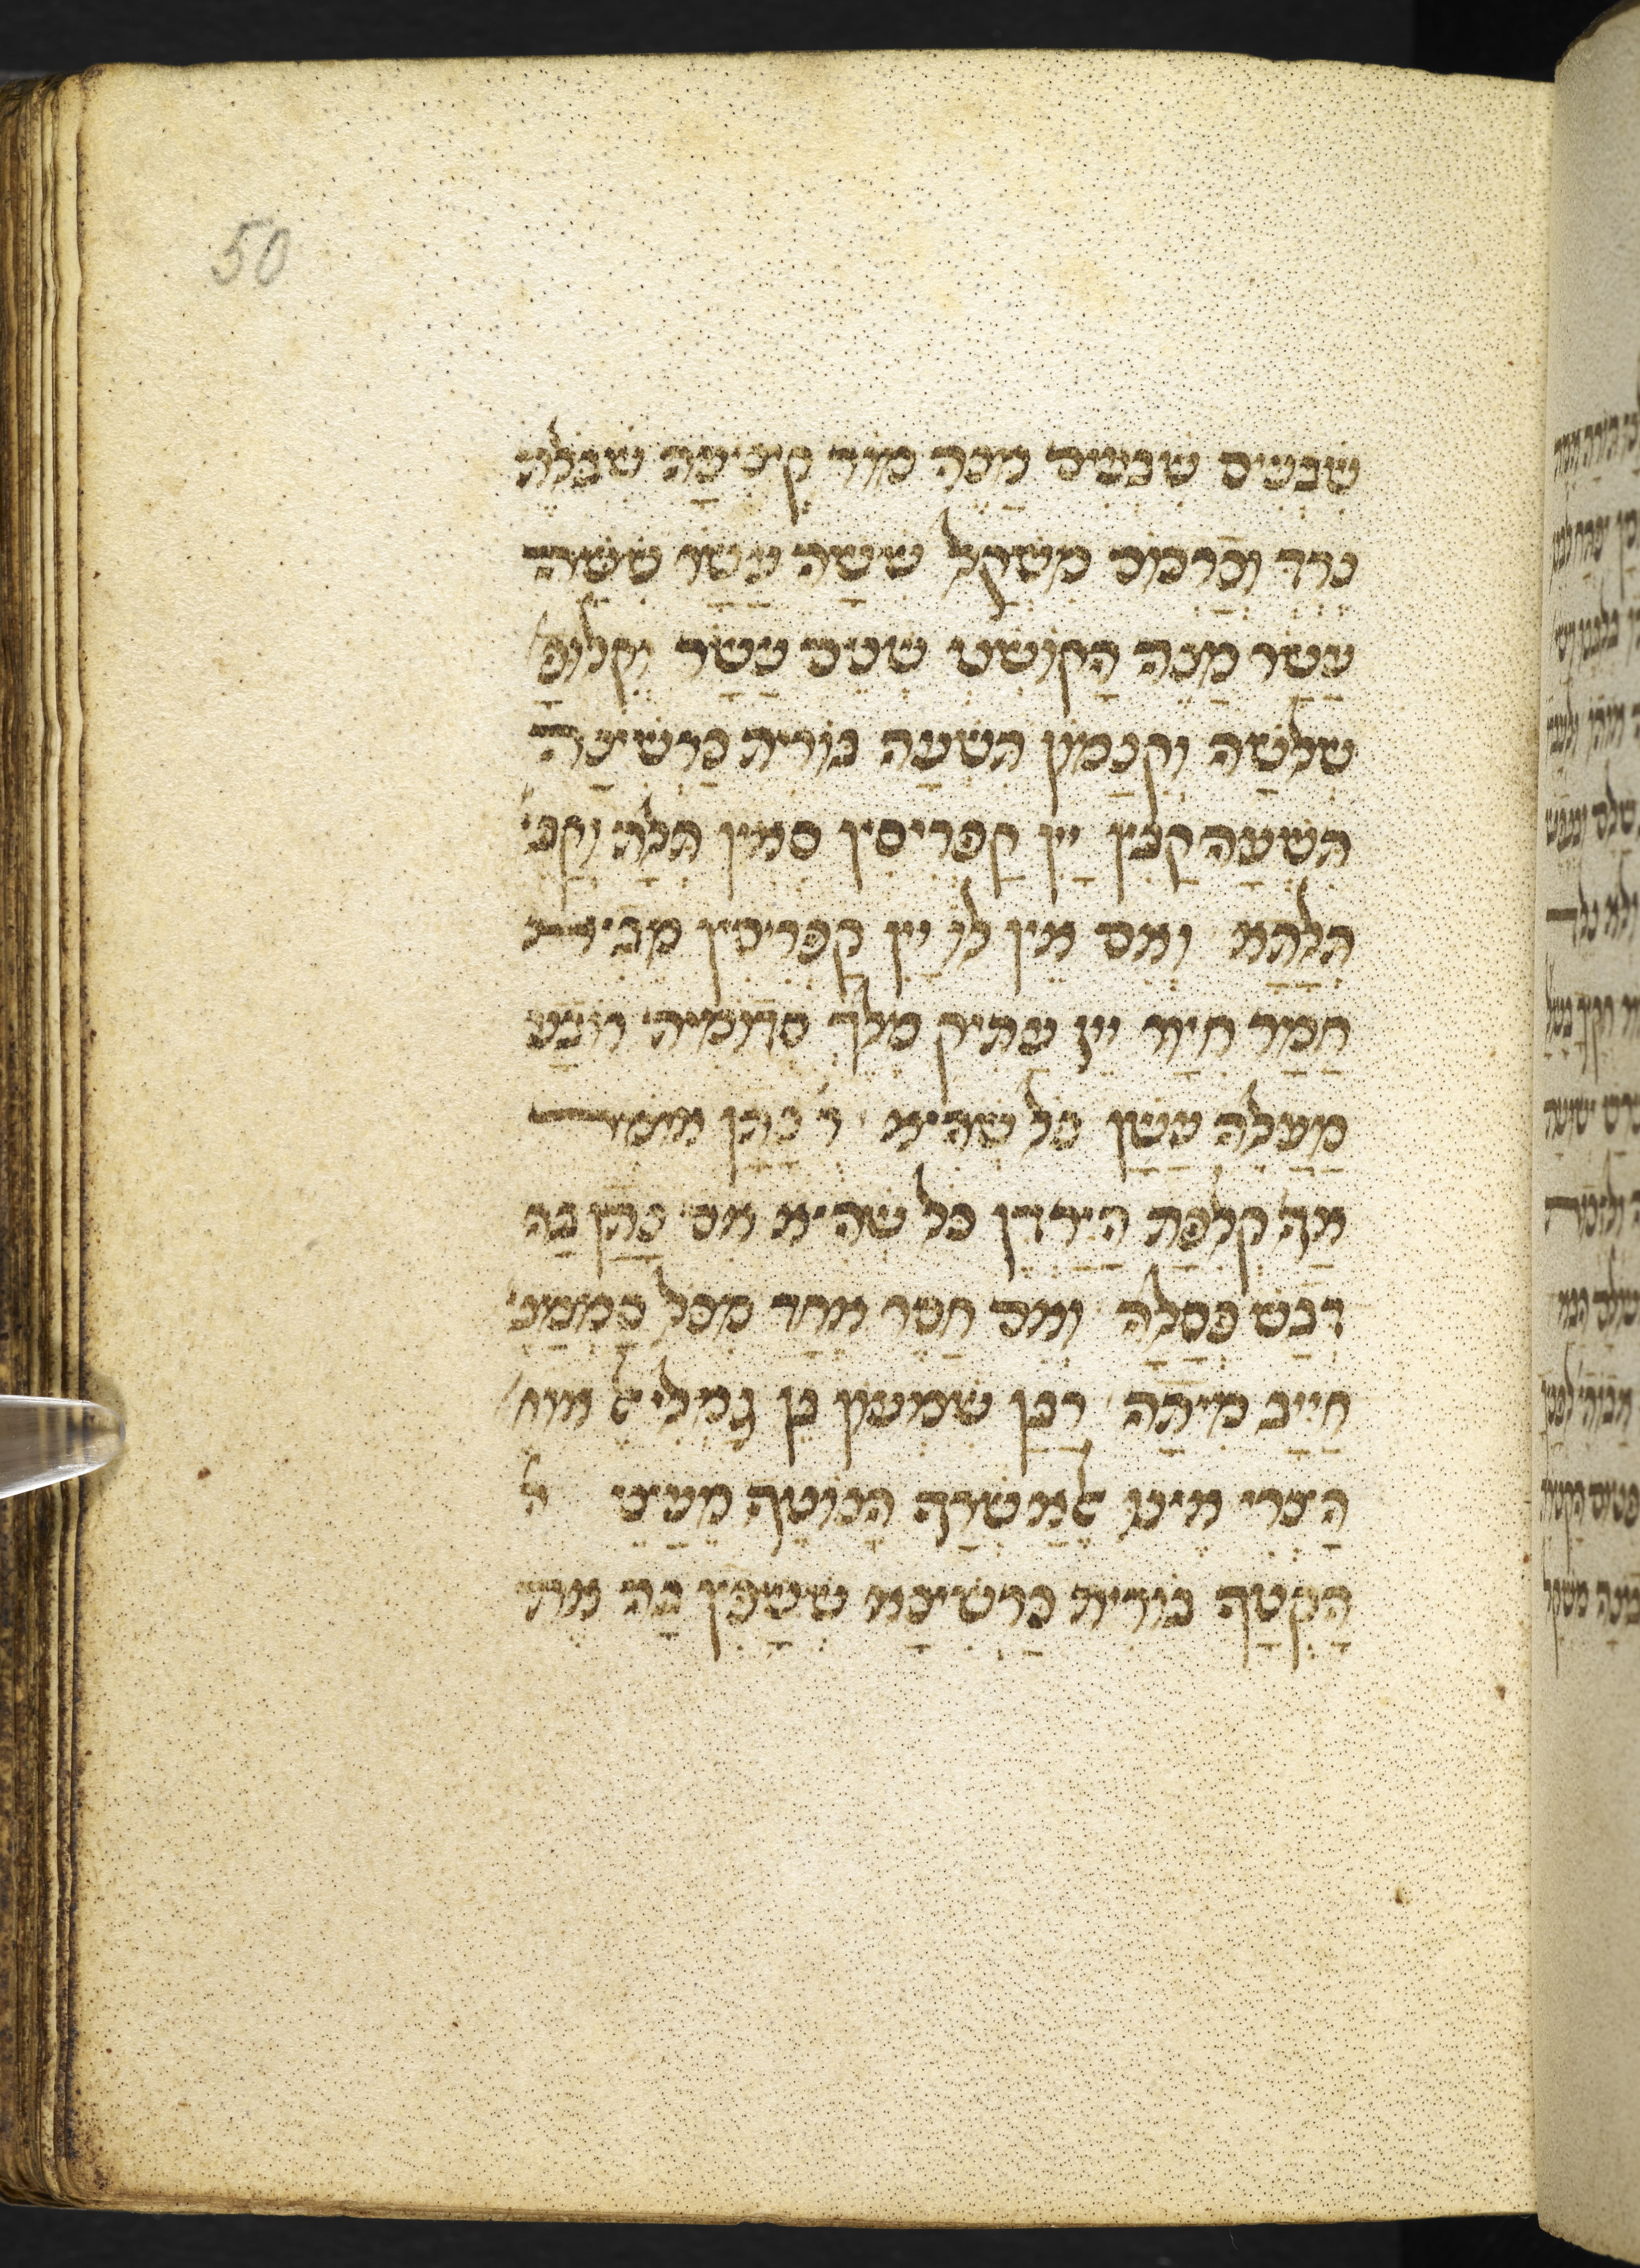 50
שבעים שבעים מנה מור קציעה שבלת
נרד וכרכום משקל ששה עשר ששה
עשר מנה הקושט שנים עשר וקלופ׳
שלשה וקנמון תשעה בורית כרשינה
תשעה קבין יין קפריסין סאין תלת וקב׳
תלתא ואם אין לו יין קפריסין מביא
חמר חיור יין עתיק מלח סדומית רובע
מעלה עשן כל שהיא ר׳ נתן אומ׳
אף כפת הירדן כל שהיא אם נתן בה
דבש פסלה ואם חסר אחד מכל סממני׳
חייב מיתה רבן שמעון בן גמליאל אומ׳
הצרי אינו אלא שרף הנוטף מעצי
הקטף בורית כרשינא ששפין בה את